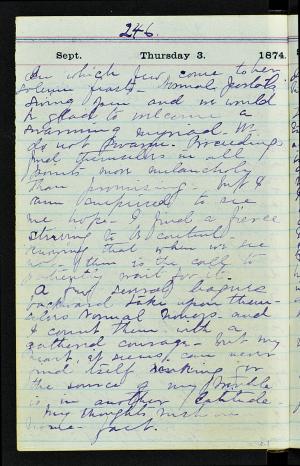 246.
Sept. Thursday 3. 1874.
in which few come to her
solemn feasts - Normal Portals
swing open and we would
be glad to welcome a
swarming myriad. We
do not swarm. Proceedings
find themselves in all
points more melancholy
than promising. But I
am surprised to see
me hope - I find a fierce
striving to be content
knowing that when we see
them is the call to
patiently wait for it.
A few several leagues
backward take upon them-
selves Normal and
I count them with a
gathered courage - but my
heart, it seems, can never
find itself for
the source of my trouble
is in another latitude.
My thoughts rush on
home - fast.